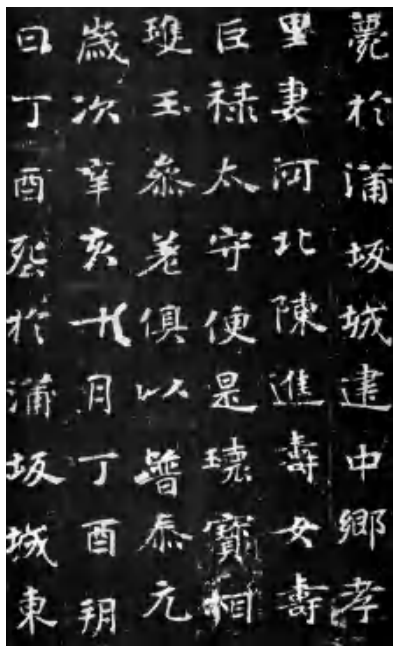 薨於蒲坂城建中鄉孝
里妻河北陳進壽女壽
巨祿太守便是瓌寶相
瓊玉參差俱以普泰元
歲次辛亥十月丁酉朔
日丁酉葬於蒲坂城東